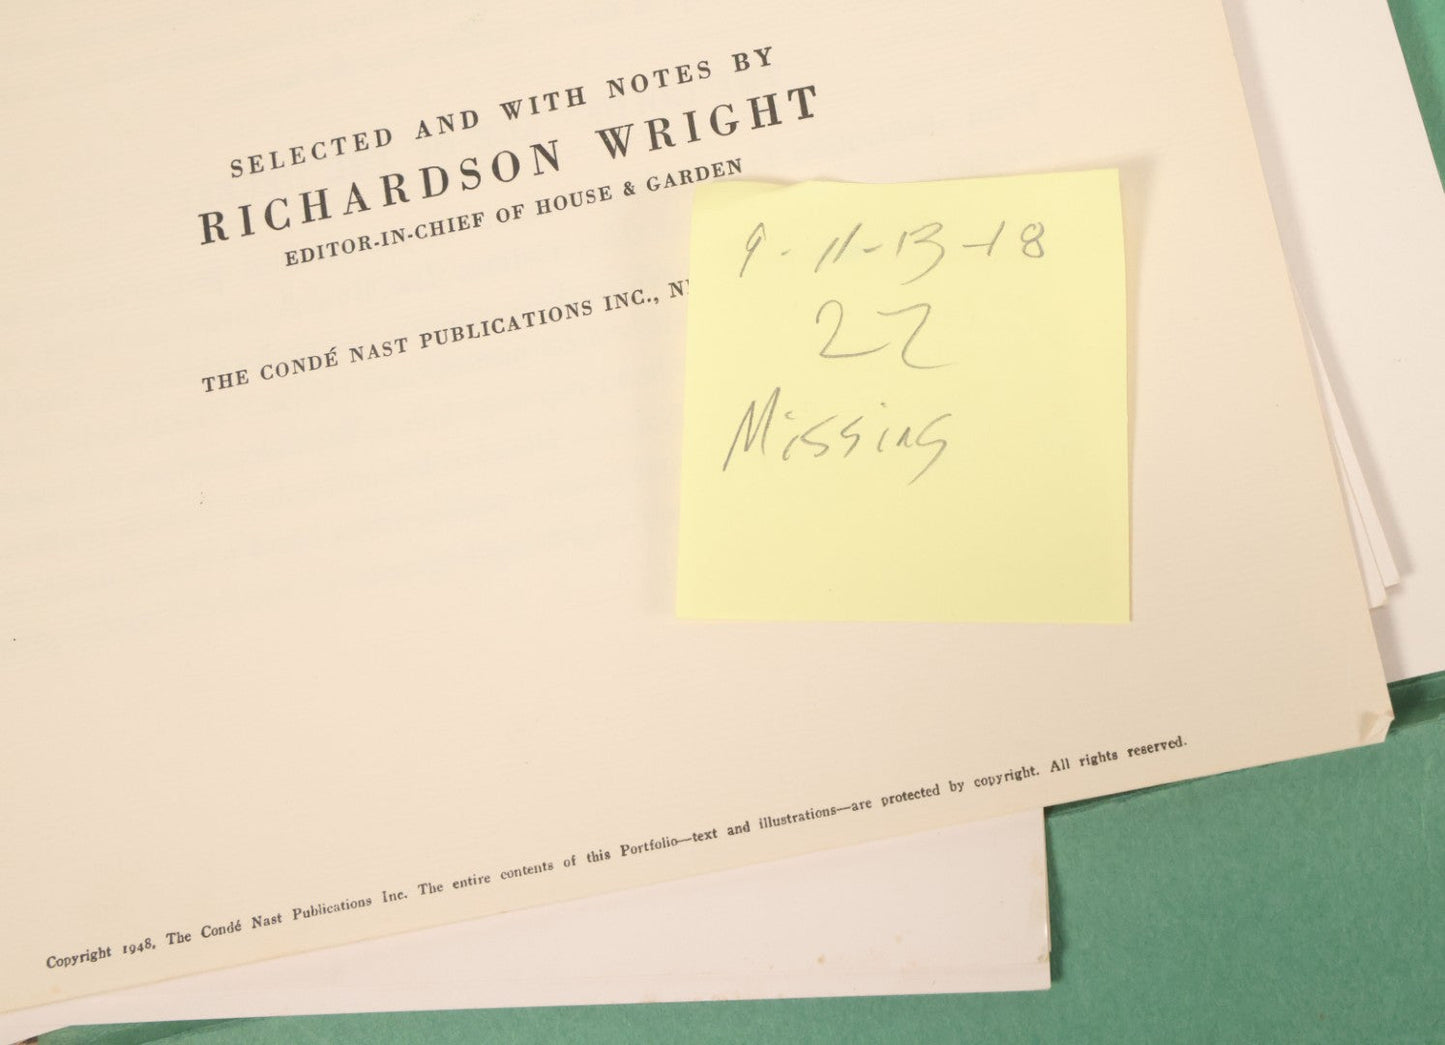 SELECTED AND WITH NOTES BY
RICHARDSON WRIGHT
EDITOR-IN-CHIEF OF HOUSE & GARDEN
THE CONDÉ NAST PUBLICATIONS INC.,
9-11-13-18
22
Missing
Copyright 1948, The Condé Nast Publications Inc. The entire contents of this Portfolio—text and illustrations—are protected by copyright. All rights reserved.